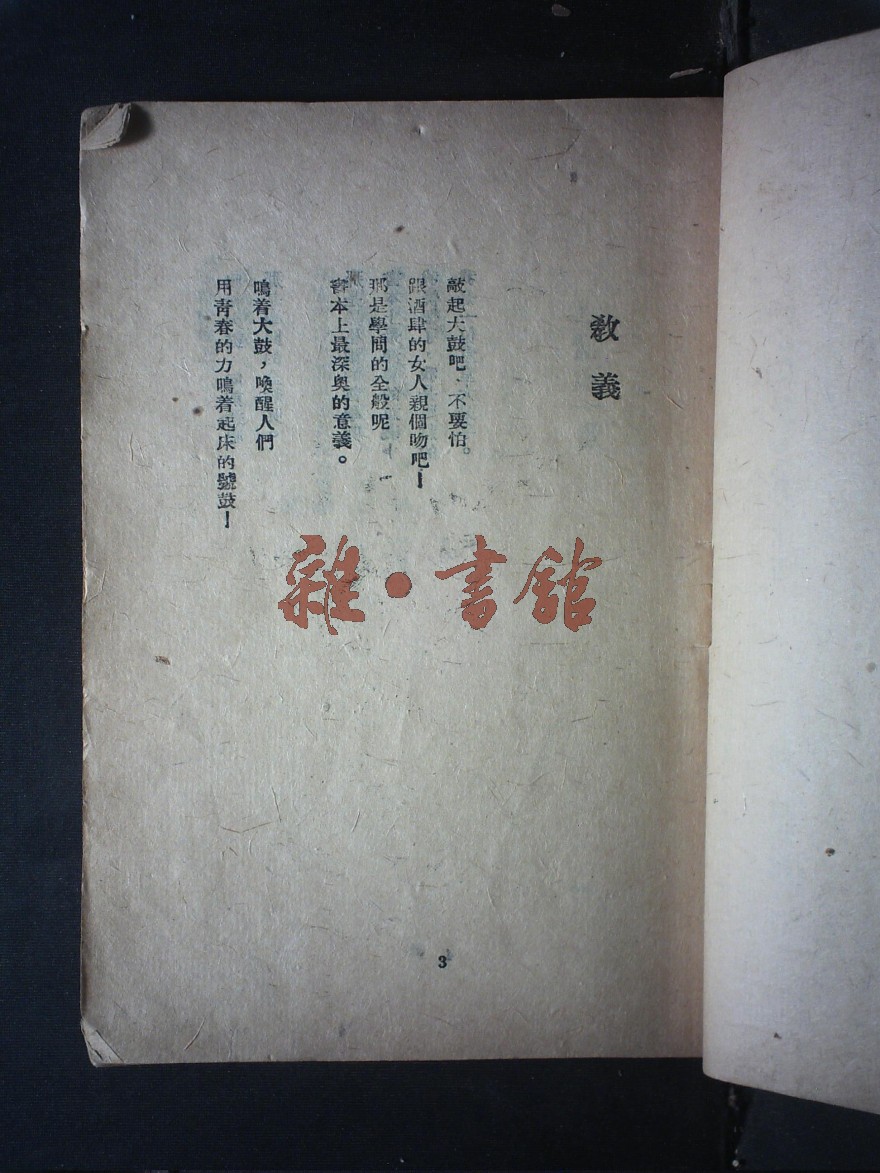 教義
敲起大鼓吧、不要怕。
跟酒肆的女人親個吻吧！
那是學問的全般呢
書本上最深奥的意義。
鳴着大鼓，喚醒人們
用靑春的力鳴着起床的號鼓！
雜•書館
3